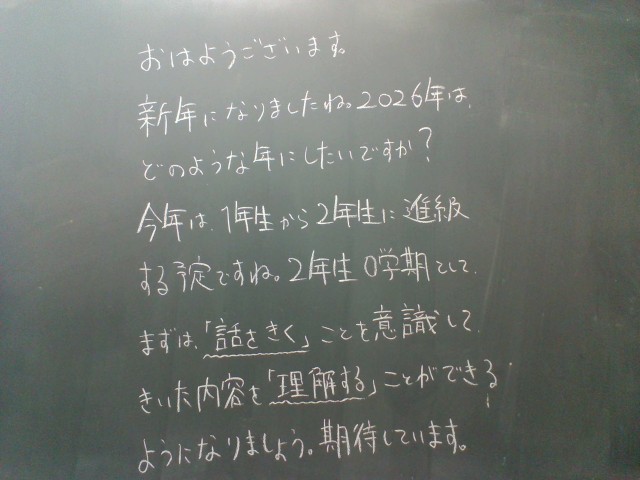 おはようございます。
新年になりましたね。2026年は、
どのような年にしたいですか?
今年は、1年生から2年生に進級
する予定ですね。2年生0学期として、
まずは、「話をきく」ことを意識して、
きいた内容を「理解する」ことができる
ようになりましょう。期待しています。